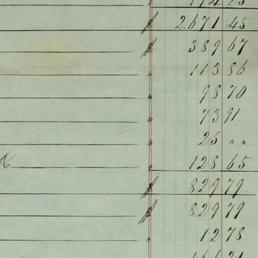 $ 2.671 45
$ 389 67
" 113 86
" 98 70
" 73 91
" 25 " "
" 128 65
$ 829 79
$ 829 79
" 12 78